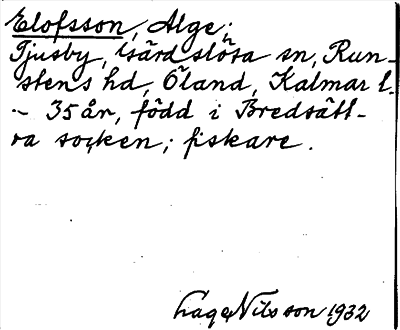 Elofsson, Alge;
Tjusby, Gärdslösa sn, Run-
stens hd, Öland, Kalmar l.
– 35 år, född i Bredsätt-
ra socken; fiskare.
Lage Nilsson 1932